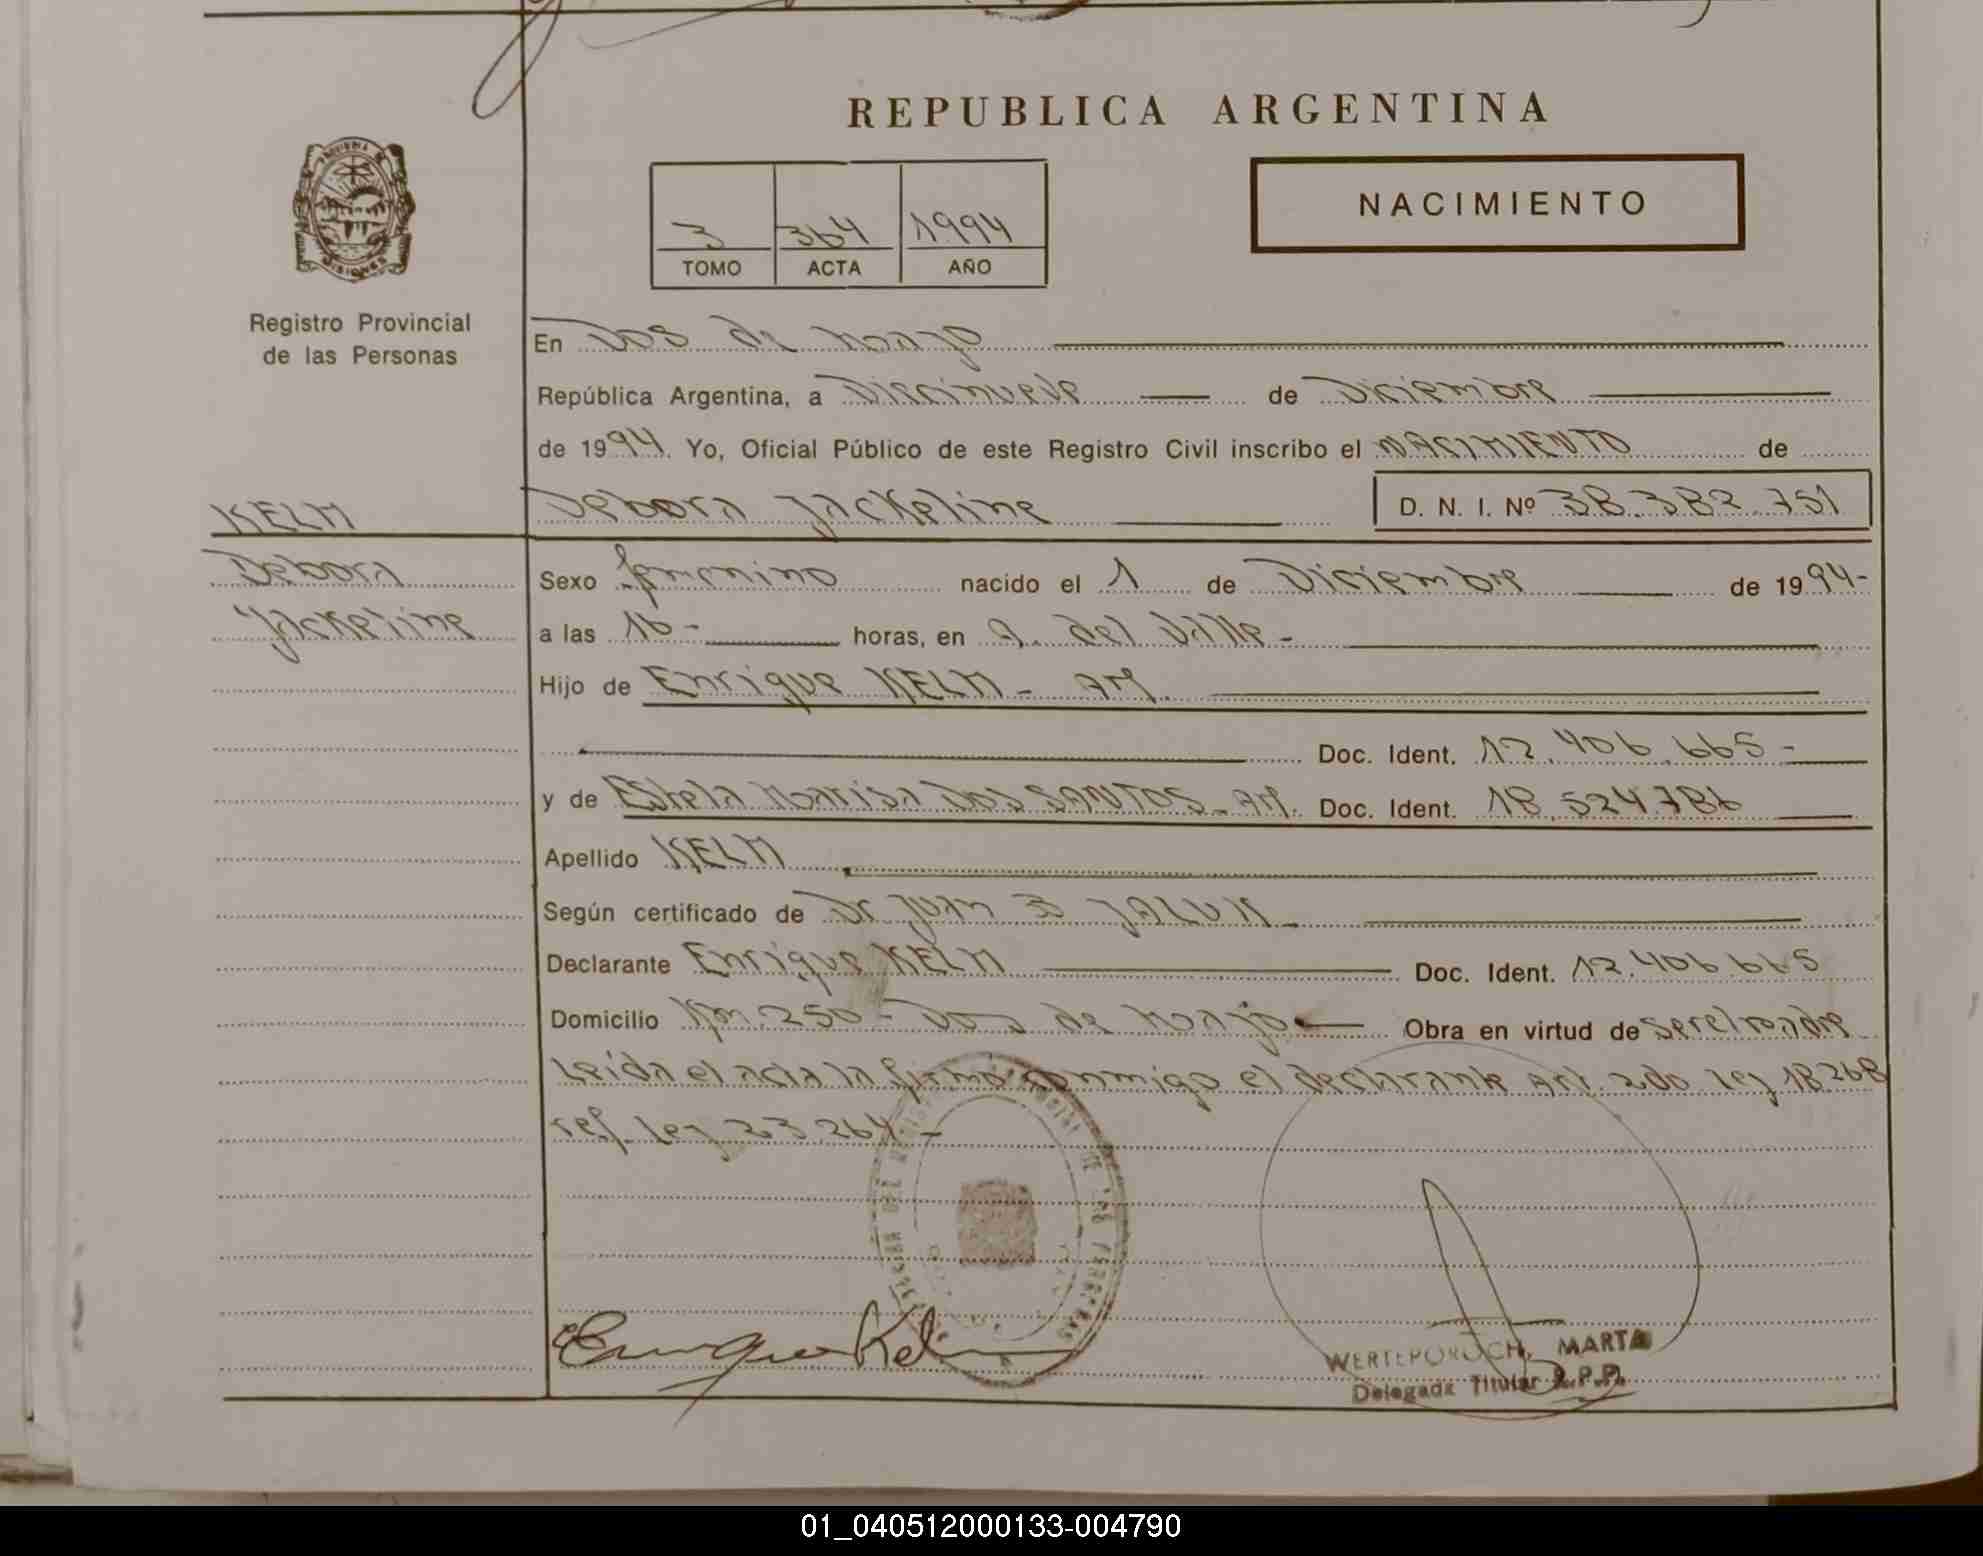 REPUBLICA ARGENTINA
NACIMIENTO
3 364 1994
TOMO ACTA AÑO
PROVINCIA DE MISIONES
Registro Provincial
de las Personas
En Dos de Mayo
República Argentina, a Diecinueve de Diciembre
de 1994. Yo, Oficial Público de este Registro Civil inscribo el NACIMIENTO de
KELM
Debora Jackeline D. N. I. Nº 38.382.751
Debora
Jackeline
Sexo femenino nacido el 1 de Diciembre de 1994-
a las 16- horas, en A. del Valle-
Hijo de Enrique KELM - AM.
Doc. Ident. 12.406.665-
y de Estela Marisa DOS SANTOS - AM. Doc. Ident. 18.524.786
Apellido KELM
Según certificado de Dr Juan B
Declarante Enrique KELM Doc. Ident. 12.406.665
Domicilio Km. 250 - Dos de Mayo Obra en virtud de ser el padre
Leida el acta la firma conmigo el declarante Art. 2do Ley 18268
ref. Ley 23.264 -
Enrique Kelm
WERTEPOROCH, MARTA
Delegada Titular R.P.P.
01_040512000133-004790